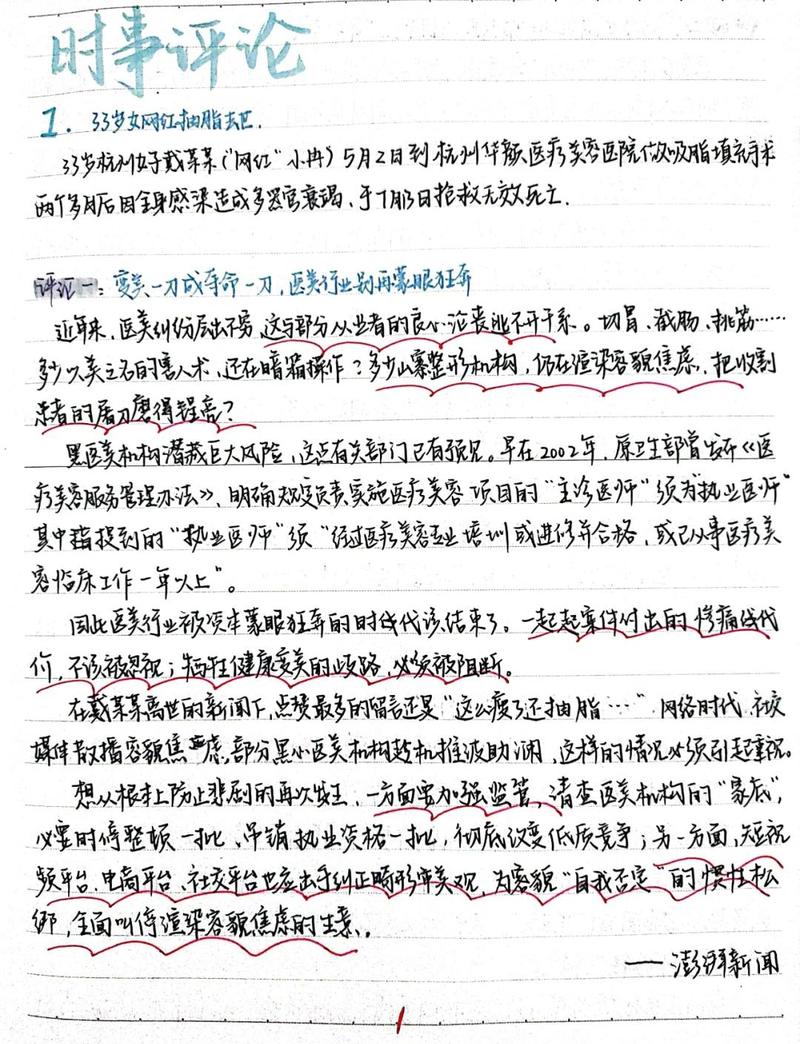 时事评论
1. 33岁女网红抽脂去世.
33岁杭州女子戴某某("网红"小冉)5月2日到杭州华颜医疗美容医院做吸脂填充手术
两个多月后因全身感染造成多器官衰竭,于7月13日抢救无效死亡.
评论一:变美一刀成夺命一刀,医美行业别再蒙眼狂奔
近年来,医美纠纷层出不穷,这与部分从业者的良心沦丧逃不开干系。切胃、截肠、挑筋……
多少以美之名的害人术,还在暗箱操作?多少山寨整形机构,仍在渲染容貌焦虑,把收割
患者的屠刀磨得锃亮?
黑医美机构潜藏巨大风险,这点有关部门已有预见。早在2002年,原卫生部曾发布《医
疗美容服务管理办法》,明确规定负责实施医疗美容项目的"主诊医师"须为"执业医师"
其中提到的"执业医师"须"经过医疗美容专业培训或进修并合格,或已从事医疗美
容临床工作一年以上"。
因此医美行业被资本蒙眼狂奔的时代该结束了。一起起案件付出的惨痛代
价,不该被忽视;牺牲健康变美的歧路,必须被阻断。
在戴某某离世的新闻下,点赞最多的留言还是"这么瘦了还抽脂……"网络时代,社交
媒体散播容貌焦虑,部分黑心医美机构趁机推波助澜,这样的情况必须引起重视。
想从根本上防止悲剧的再次发生,一方面要加强监管,清查医美机构的"家底",
必要时停整顿一批、吊销执业资格一批,彻底改变低质竞争;另一方面,短视
频平台、电商平台、社交平台也应出手纠正畸形审美观,为容貌"自我否定"的惯性松
绑,全面叫停渲染容貌焦虑的生意。
——澎湃新闻
1